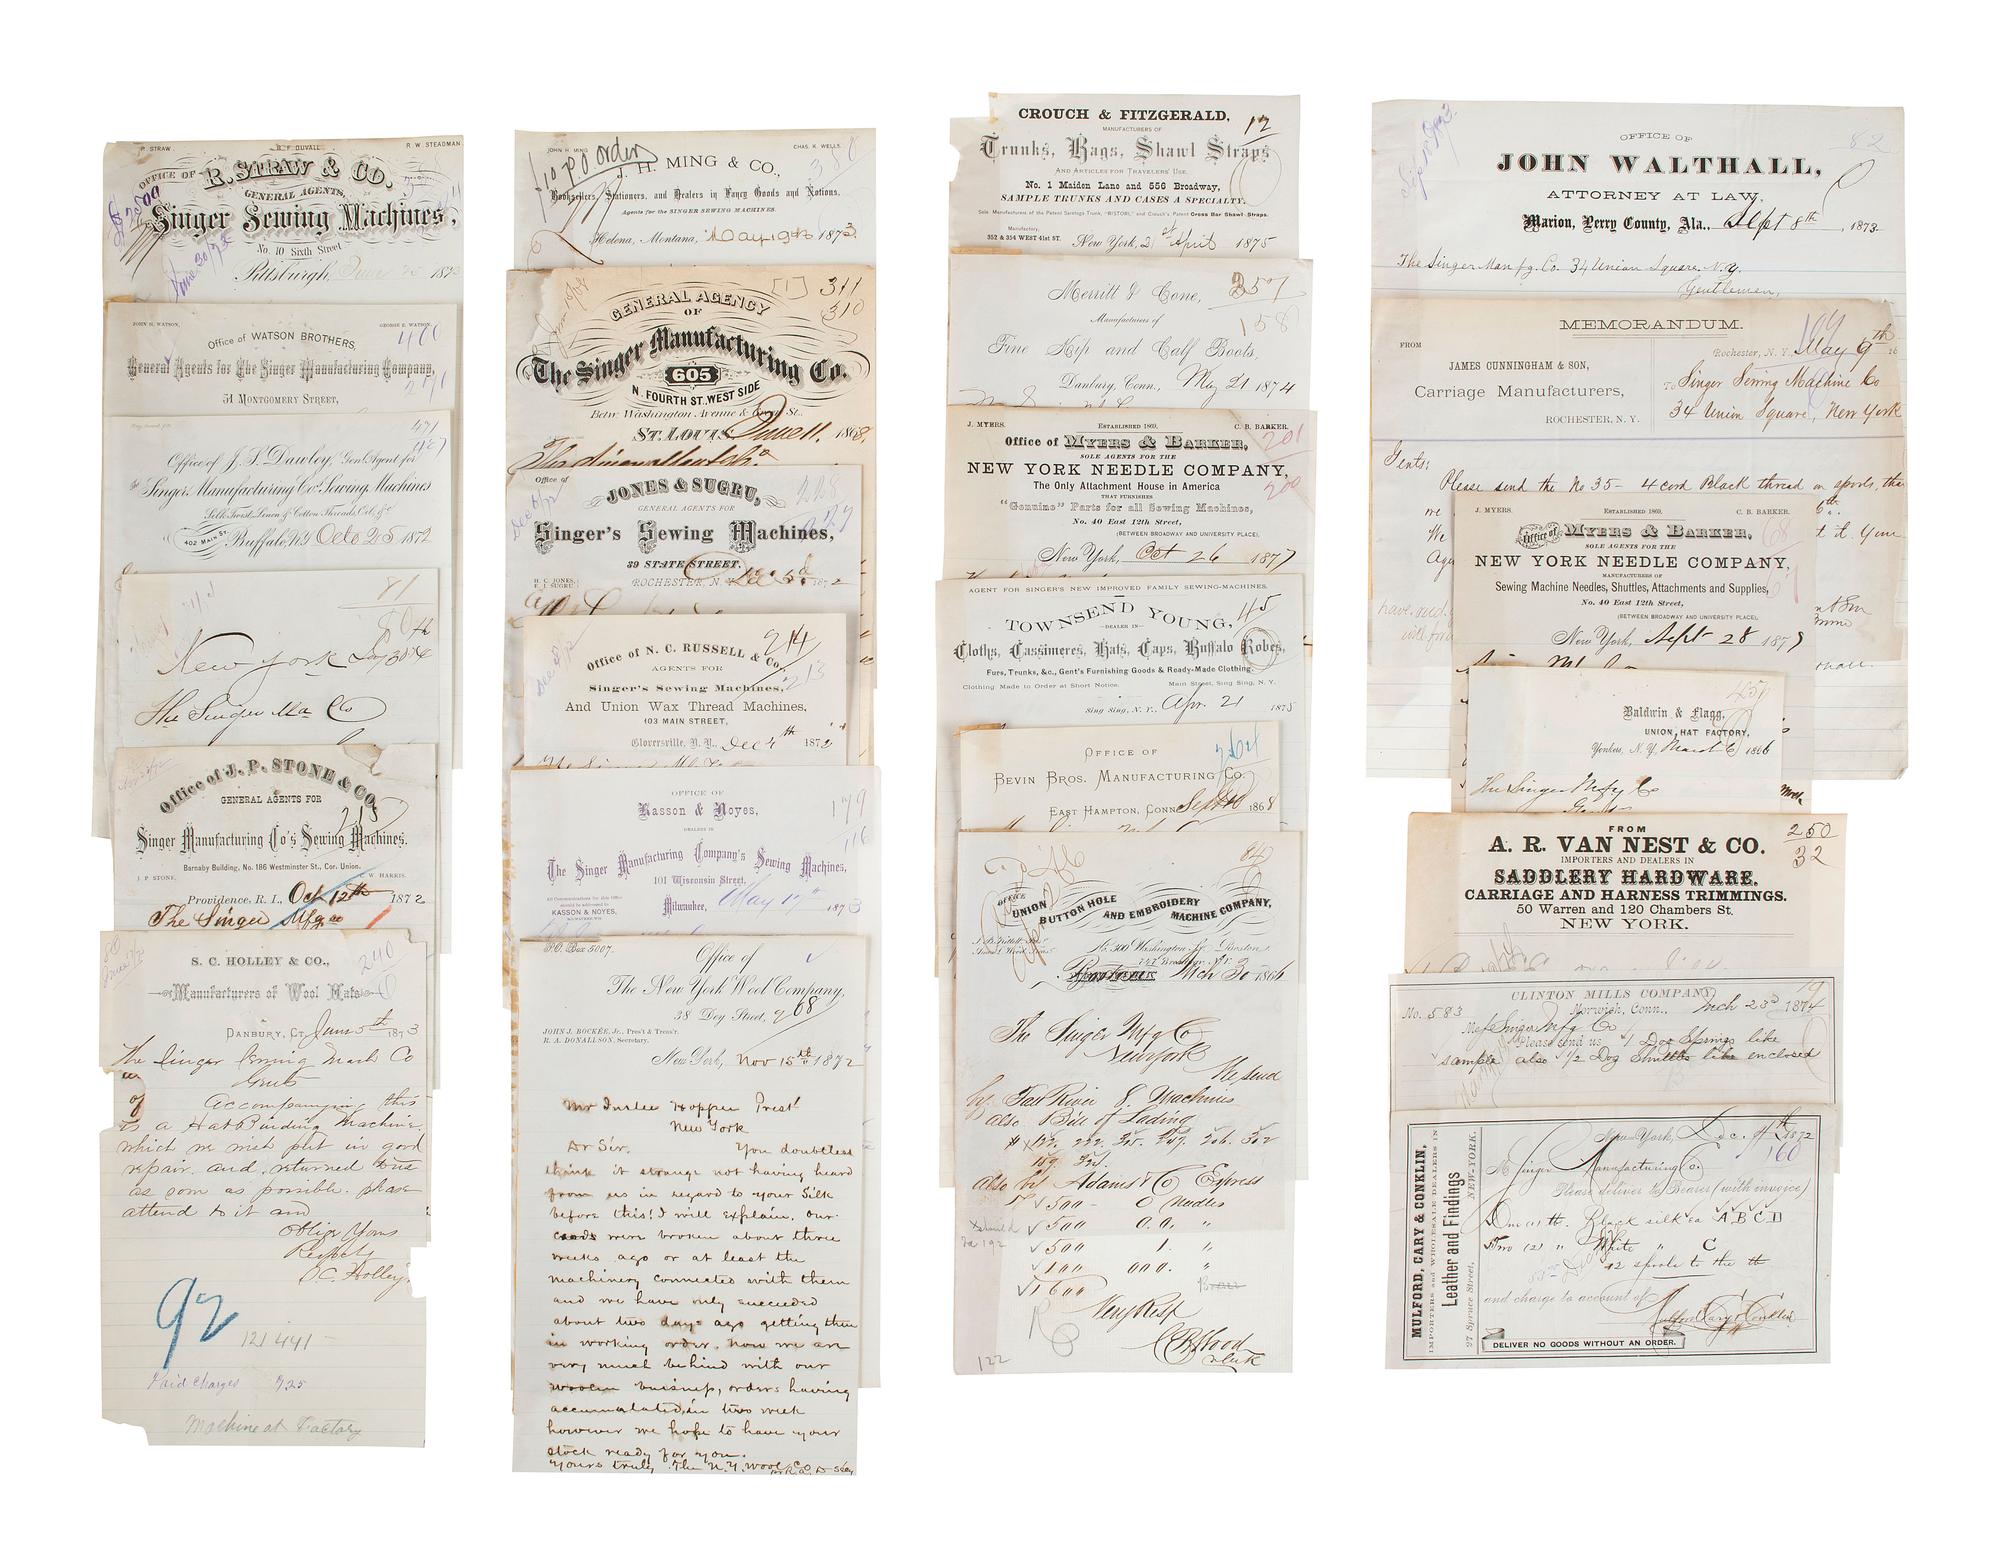 R. STRAW
B. F. DUVALL
R. W. STEADMAN
OFFICE OF
R. STRAW & CO.
GENERAL AGENTS,
Singer Sewing Machines,
No. 10 Sixth Street
Pittsburgh, June 25 1873
June 30/73
JOHN H. WATSON,
GEORGE E. WATSON.
Office of WATSON BROTHERS,
General Agents for The Singer Manufacturing Company,
51 MONTGOMERY STREET,
471
Office of J. S. Dawley, Genl Agent for
The Singer Manufacturing Co's Sewing Machines
Silk Twist, Linen & Cotton Threads, Oil, &c
402 MAIN St.
Buffalo, N.Y. Octo 25 1872
81
New York
The Singer Ma Co
Office of J. P. STONE & CO.
GENERAL AGENTS FOR
215
Singer Manufacturing Co's Sewing Machines.
Barnaby Building, No. 186 Westminster St., Cor. Union.
J. P. STONE,
C. W. HARRIS.
Providence, R. I., Oct 12th 1872
The Singer Mfg co
240
S. C. HOLLEY & CO.,
Manufacturers of Wool Hats
DANBURY, CT. June 5th 1873
The Singer Sewing Mach Co
Gents
Accompanying this
is a Hat Binding Machine,
which we wish put in good
repair and returned to us
as soon as possible. please
attend to it and
Oblige Yours
Respectly
S C. Holley
92
121 441
Paid Charges 7.25
Machine at Factory
JOHN H. MING
CHAS. K. WELLS.
P.O order
380
J. H. MING & CO.,
Booksellers, Stationers, and Dealers in Fancy Goods and Notions.
Agents for the SINGER SEWING MACHINES.
Helena, Montana, May 19th 1873.
[1] 311
310
GENERAL AGENCY
OF
The Singer Manufacturing Co.
605
N. FOURTH ST. WEST SIDE
Betw. Washington Avenue & Green St.,
ST. LOUIS June 11. 1868.
Office of
Dec 6/72
JONES & SUGRU,
228
227
GENERAL AGENTS FOR
Singer's Sewing Machines,
39 STATE STREET.
H. C. JONES.
E. I. SUGRU.
ROCHESTER, N. Y. Dec 5d 1872
214
213
Office of N. C. RUSSELL & Co.
AGENTS FOR
Singer's Sewing Machines,
And Union Wax Thread Machines,
103 MAIN STREET,
Gloversville, N. Y., Dec 4th 1872
OFFICE OF
Kasson & Noyes,
179
DEALERS IN
The Singer Manufacturing Company's Sewing Machines,
101 Wisconsin Street,
All Communications for this Office
should be addressed to
KASSON & NOYES,
Milwaukee, May 17th 1873
P.O. Box 5007.
Office of
The New York Wool Company,
38 Dey Street,
268
JOHN J. BOCKÉE, Jr., Pres't & Treas'r.
R. A. DONALLSON, Secretary.
New York, Nov 15th 1872
Mr Inslee Hopper Prest
New York
Dr Sir. You doubtless
think it strange not having heard
from us in regard to your Silk
before this! I will explain. our
cards were broken about three
weeks ago or at least the
machinery connected with them
and we have only succeeded
about two days ago getting them
in working order. now we are
very much behind with our
woolen business, orders having
accumulated, in two week
however we hope to have your
stock ready for you.
Yours truly The N.Y. Wool Co
CROUCH & FITZGERALD,
12
MANUFACTURERS OF
Trunks, Bags, Shawl Straps
AND ARTICLES FOR TRAVELERS' USE.
No. 1 Maiden Lane and 556 Broadway,
SAMPLE TRUNKS AND CASES A SPECIALTY.
Sole Manufacturers of the Patent Saratoga Trunk, "RISTORI," and Crouch's Patent Cross Bar Shawl-Straps.
Manufactory,
352 & 354 WEST 41st ST.
New York, 21st April 1875
Merritt & Cone,
158
Manufacturers of
Fine Kip and Calf Boots,
Danbury, Conn., May 21 1874
J. MYERS.
ESTABLISHED 1869.
C. B. BARKER.
201
200
Office of MYERS & BARKER,
SOLE AGENTS FOR THE
NEW YORK NEEDLE COMPANY,
The Only Attachment House in America
THAT FURNISHES
"Genuine" Parts for all Sewing Machines,
No. 40 East 12th Street,
(BETWEEN BROADWAY AND UNIVERSITY PLACE).
New York, Oct 26 1877
AGENT FOR SINGER'S NEW IMPROVED FAMILY SEWING-MACHINES.
TOWNSEND YOUNG,
45
DEALER IN
Cloths, Cassimeres, Hats, Caps, Buffalo Robes,
Furs, Trunks, &c., Gent's Furnishing Goods & Ready-Made Clothing.
Clothing Made to Order at Short Notice.
Main Street, Sing Sing, N. Y.
Sing Sing, N. Y., Apr. 21 1875
OFFICE OF
BEVIN BROS. MANUFACTURING CO.
EAST HAMPTON, CONN. Sept 10 1868
84
OFFICE
UNION BUTTON HOLE AND EMBROIDERY MACHINE COMPANY,
No. 300 Washington St. Boston.
747 Broadway, N.Y.
Mch 30 1866
The Singer Mfg Co
New York
We send
by Fall River 8 Machines
also Bill of Lading
also by Adams & Co Express
500 - 0 Needles
500 0.0. "
500 1. "
100 000. "
1600
Very Resp
122
OFFICE OF
82
JOHN WALTHALL,
ATTORNEY AT LAW,
Marion, Perry County, Ala., Sept 8th, 1873
The Singer Manfg. Co. 34 Union Square. N.Y.
Gentlemen,
MEMORANDUM.
FROM
Rochester, N. Y., May 9th
JAMES CUNNINGHAM & SON,
Carriage Manufacturers,
ROCHESTER, N. Y.
To Singer Sewing Machine Co
34 Union Square, New York
Gents:
Please send the No 35 - 4 cord Black thread on spools, that
J. MYERS.
ESTABLISHED 1869.
C. B. BARKER.
68
67
Office of MYERS & BARKER,
SOLE AGENTS FOR THE
NEW YORK NEEDLE COMPANY,
MANUFACTURERS OF
Sewing Machine Needles, Shuttles, Attachments and Supplies,
No. 40 East 12th Street,
(BETWEEN BROADWAY AND UNIVERSITY PLACE),
New York, Sept 28 1877
Baldwin & Flagg,
UNION HAT FACTORY,
Yonkers, N. Y. March 6 1866
The Singer Mfg Co
Gents
FROM
250
32
A. R. VAN NEST & CO.
IMPORTERS AND DEALERS IN
SADDLERY HARDWARE.
CARRIAGE AND HARNESS TRIMMINGS.
50 Warren and 120 Chambers St.
NEW YORK.
CLINTON MILLS COMPANY,
No. 583
Norwich, Conn., Mch 23d 1874
Mess Singer Mfg Co
Please send us 1 Doz Springs like
sample also 1/2 Doz Shuttles like enclosed
MULFORD, CARY & CONKLIN,
IMPORTERS and WHOLESALE DEALERS IN
Leather and Findings
27 Spruce Street, NEW-YORK.
New-York, Dec. 9th 1872
160
M Singer Manufacturing Co.
Please deliver to Bearer (with invoice)
One (1) lb. Black silk ea A B C D
Two (2) " White " C
12 spools to the lb
and charge to account of
Mulford Cary & Conklin
DELIVER NO GOODS WITHOUT AN ORDER.